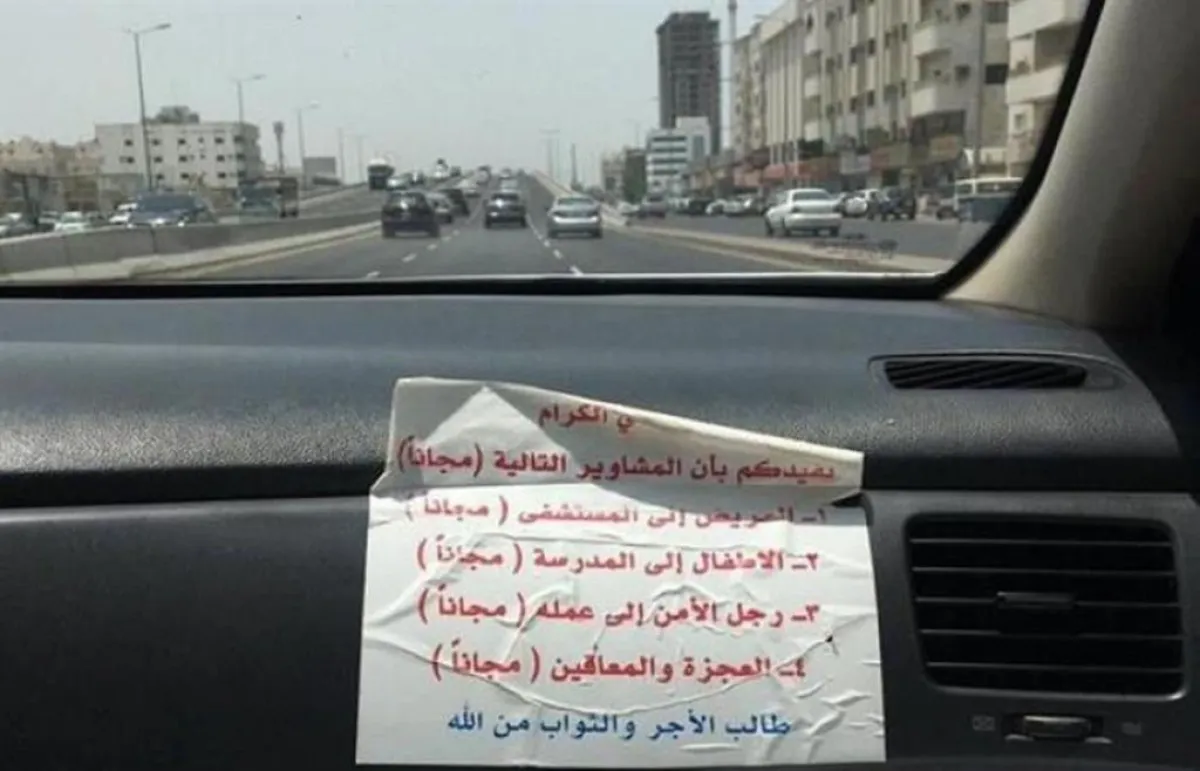 الكرام
نفيدكم بأن المشاوير التالية (مجاناً)
١ـ المريض إلى المستشفى ( مجاناً )
٢ـ الاطفال إلى المدرسة ( مجاناً )
٣ـ رجل الأمن إلى عمله ( مجاناً )
٤ـ العجزة والمعاقين ( مجاناً )
طالب الأجر والثواب من الله